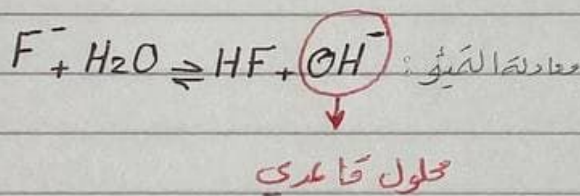 معادلة التميؤ: F⁻ + H2O ⇌ HF + OH⁻
محلول قاعدي